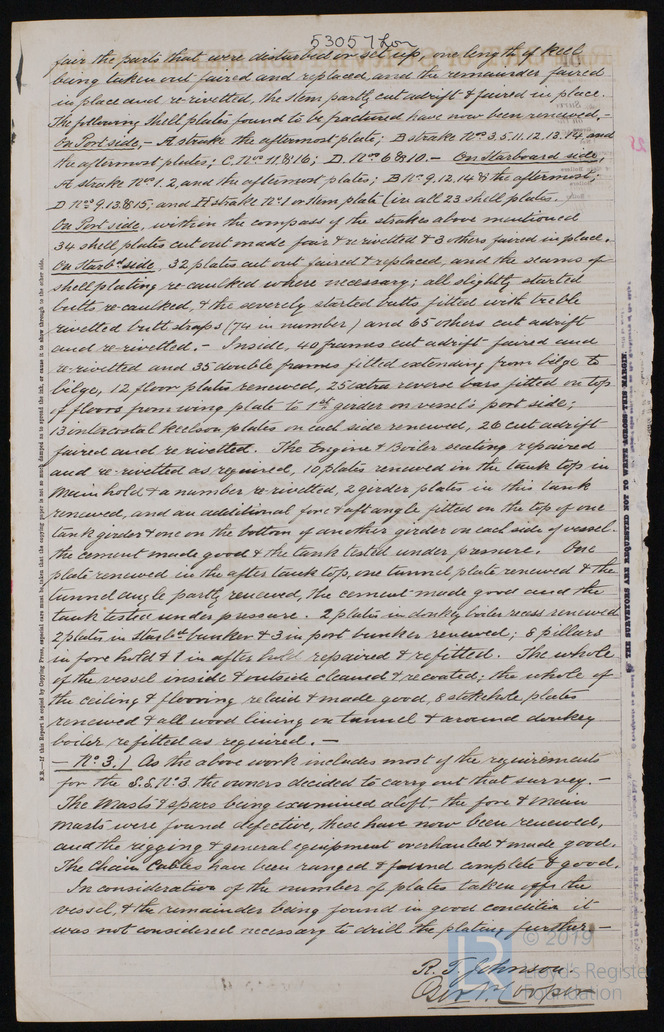 53057 Lon
fair the parts that were disturbed or set up, one length of keel
being taken out faired and replaced, and the remainder faired
in place and re-rivetted, the stem partly cut adrift & faired in place.
The following shell plates found to be fractured have now been renewed,-
On Port side,- A strake the aftermost plate; B strake Nos 3.5.11.12.13.14 and
the aftermost plates; C. Nos 11 & 16; D. Nos 6 & 10.- On Starboard side,
A strake Nos 1.2, and the aftermost plates; B Nos 9.12.14 & the aftermost;
D Nos 9.13.& 15, and strake No 1 or stem plate (in all 23 shell plates.
On Port side, within the compass of the strakes above mentioned
34 shell plates cut out made fair & re rivetted & 3 others faired in place.
On Starbd side, 32 plates cut out faired & replaced, and the seams of
shell plating re-caulked where necessary; all slightly started
butts re-caulked, & the severely started butts fitted with treble
rivetted butt straps (74 in number) and 65 others cut adrift
and re-rivetted.- Inside, 40 frames cut adrift faired and
re-rivetted and 35 double frames fitted extending from bilge to
bilge, 12 floor plates renewed, 25 extra reverse bars fitted on top
of floors from wing plate to 1st girder on vessel's port side;
13 intercostal keelson plates on each side renewed, 26 cut adrift
faired and re rivetted. The Engine & Boiler seating repaired
and re-rivetted as required, 10 plates renewed in the tank top in
Main hold & a number re-rivetted, 2 girder plates in this tank
renewed, and an additional fore & aft angle fitted on the top of one
tank girder & one on the bottom of another girder on each side of vessel.
the cement made good & the tank tested under pressure. One
plate renewed in the after tank top, one tunnel plate renewed & the
tunnel angle partly renewed, the cement made good and the
tank tested under pressure. 2 plates in donkey boiler recess renewed
2 plates in starbd bunker & 3 in port bunker renewed; 8 pillars
in fore hold & 1 in after hold repaired & refitted. The whole
of the vessel inside & outside cleaned & recoated; the whole of
the ceiling & flooring relaid & made good, 8 stokehole plates
renewed & all wood lining on tunnel & around donkey
boiler refitted as required.-
- No 3.) As the above work includes most of the requirements
for the S.S. No 3. the owners decided to carry out that survey.-
The Masts & spars being examined aloft the fore & Main
masts were found defective, these have now been renewed,
and the rigging & general equipment overhauled & made good.
The Chain Cables have been ranged & found complete & good.
In consideration of the number of plates taken off the
vessel, & the remainder being found in good condition it
was not considered necessary to drill the plating further.-
R. T. Johnson.
Geo. Cooper
N.B.—If this Report is copied by Copying Press, especial care must be taken that the copying paper is not so much damped as to spread the ink, or cause it to show through to the other side.
THE SURVEYORS ARE REQUESTED NOT TO WRITE ACROSS THIS MARGIN.
© 2019
Lloyd's Register
Foundation